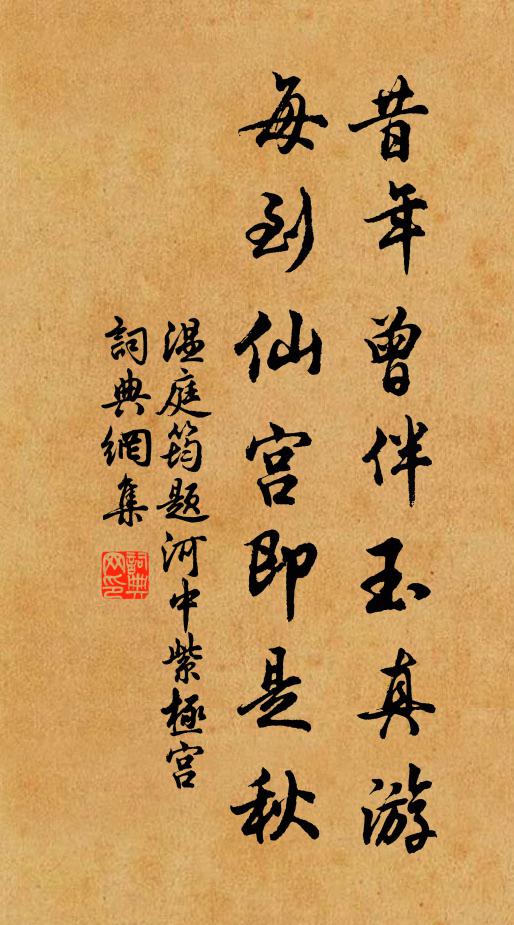 昔年曾伴玉真游
每到仙宫即是秋
温庭筠题河中紫極宫
詞典網集
詞典网印